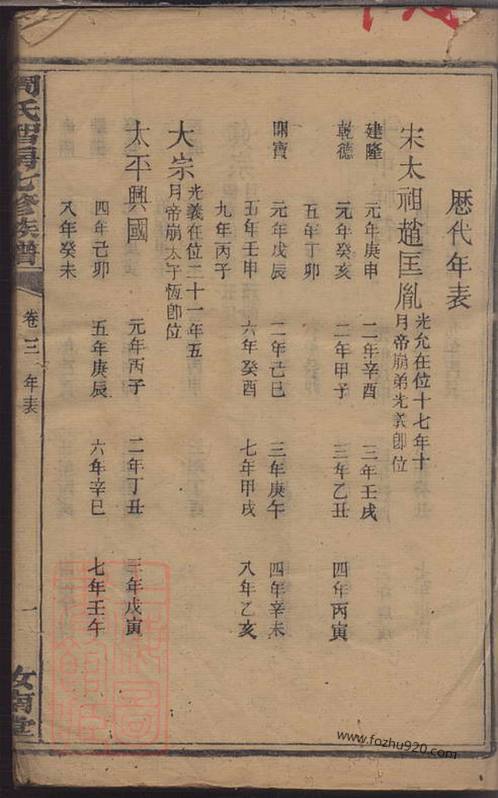 歷代年表
宋太祖趙匡胤 光允在位十七年十月帝崩弟光義即位
建隆 元年庚申 二年辛酉 三年壬戌
乾德 元年癸亥 二年甲子 三年乙丑 四年丙寅
五年丁卯
開寶 元年戊辰 二年己巳 三年庚午 四年辛未
五年壬申 六年癸酉 七年甲戌 八年乙亥
九年丙子
大宗 光義在位二十一年五月帝崩太子恆即位
太平興國 元年丙子 二年丁丑 三年戊寅
四年己卯 五年庚辰 六年辛巳 七年壬午
八年癸未
周氏智房七修族譜
卷三 年表
一
汝南堂
www.fozhu920.com